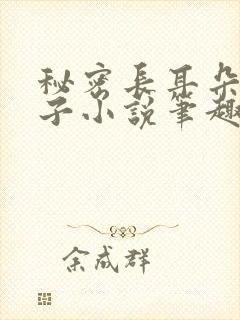 秘密長耳朵
子小說筆趣
余成群